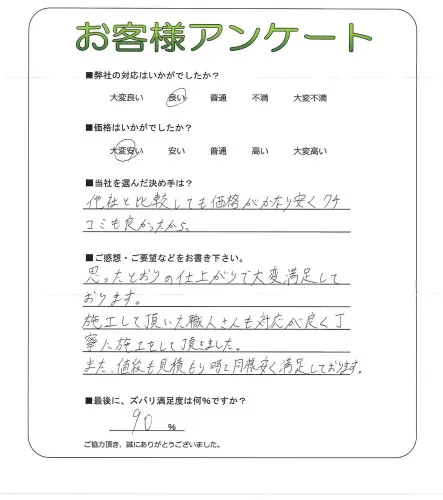 お客様アンケート
■弊社の対応はいかがでしたか？
大変良い 良い 普通 不満 大変不満
■価格はいかがでしたか？
大変安い 安い 普通 高い 大変高い
■当社を選んだ決め手は？
他社と比較しても価格がかなり安くクチ
コミも良かったから。
■ご感想・ご要望などをお書き下さい。
思ったとおりの仕上がりで大変満足して
おります。
施工して頂いた職人さんも対応が良く丁
寧に施工をして頂きました。
また、値段も見積もり時と同様安く満足しております。
■最後に、ズバリ満足度は何％ですか？
90 %
ご協力頂き、誠にありがとうございました。